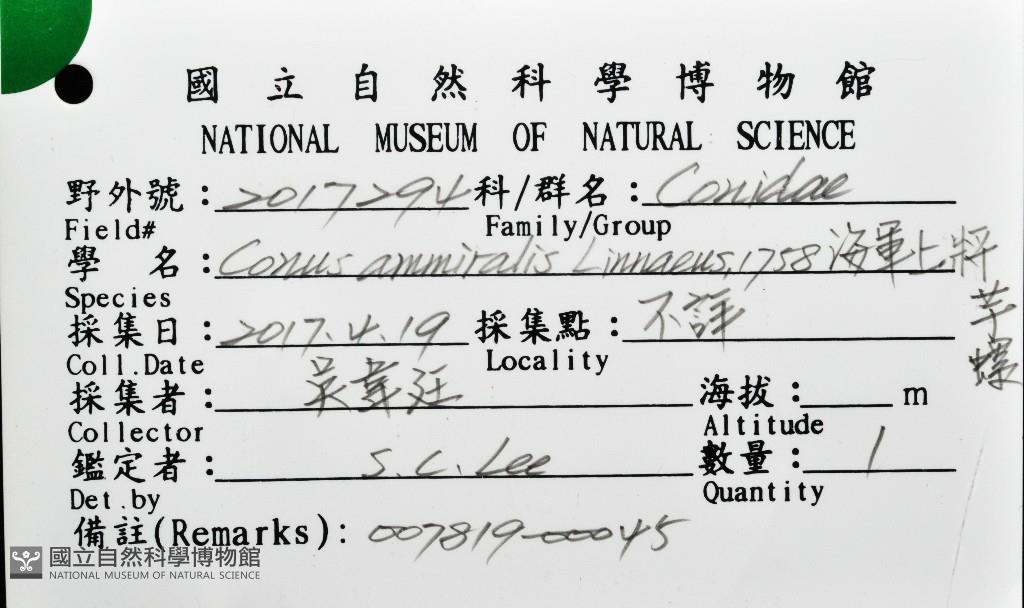 國立自然科學博物館
NATIONAL MUSEUM OF NATURAL SCIENCE
野外號：2017294 科/群名：Conidae
Field# Family/Group
學 名：Conus ammiralis Linnaeus, 1758 海軍上將芋螺
Species
採集日：2017.4.19 採集點：不詳
Coll.Date Locality
採集者：吳韋廷 海拔： m
Collector Altitude
鑑定者：S.C. Lee 數量：1
Det.by Quantity
備註(Remarks): 007819-00045
國立自然科學博物館
NATIONAL MUSEUM OF NATURAL SCIENCE